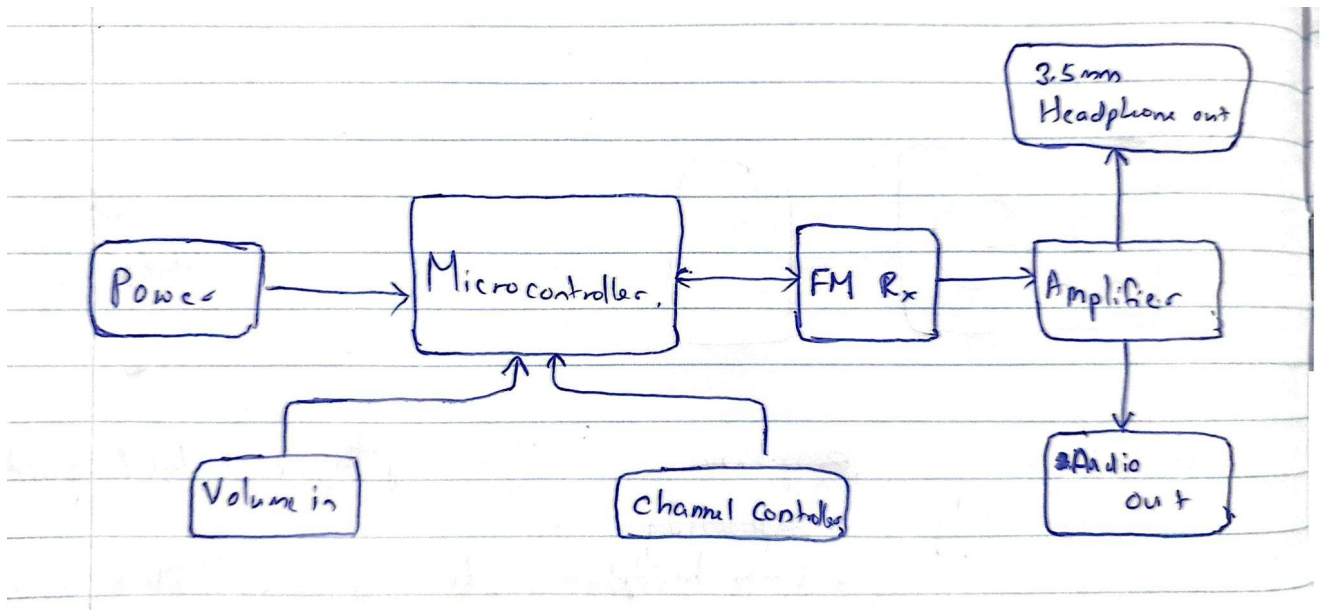 3.5mm
Headphone out
Power
Microcontroller.
FM Rx
Amplifier
Volume in
Channel Controller
Audio
out